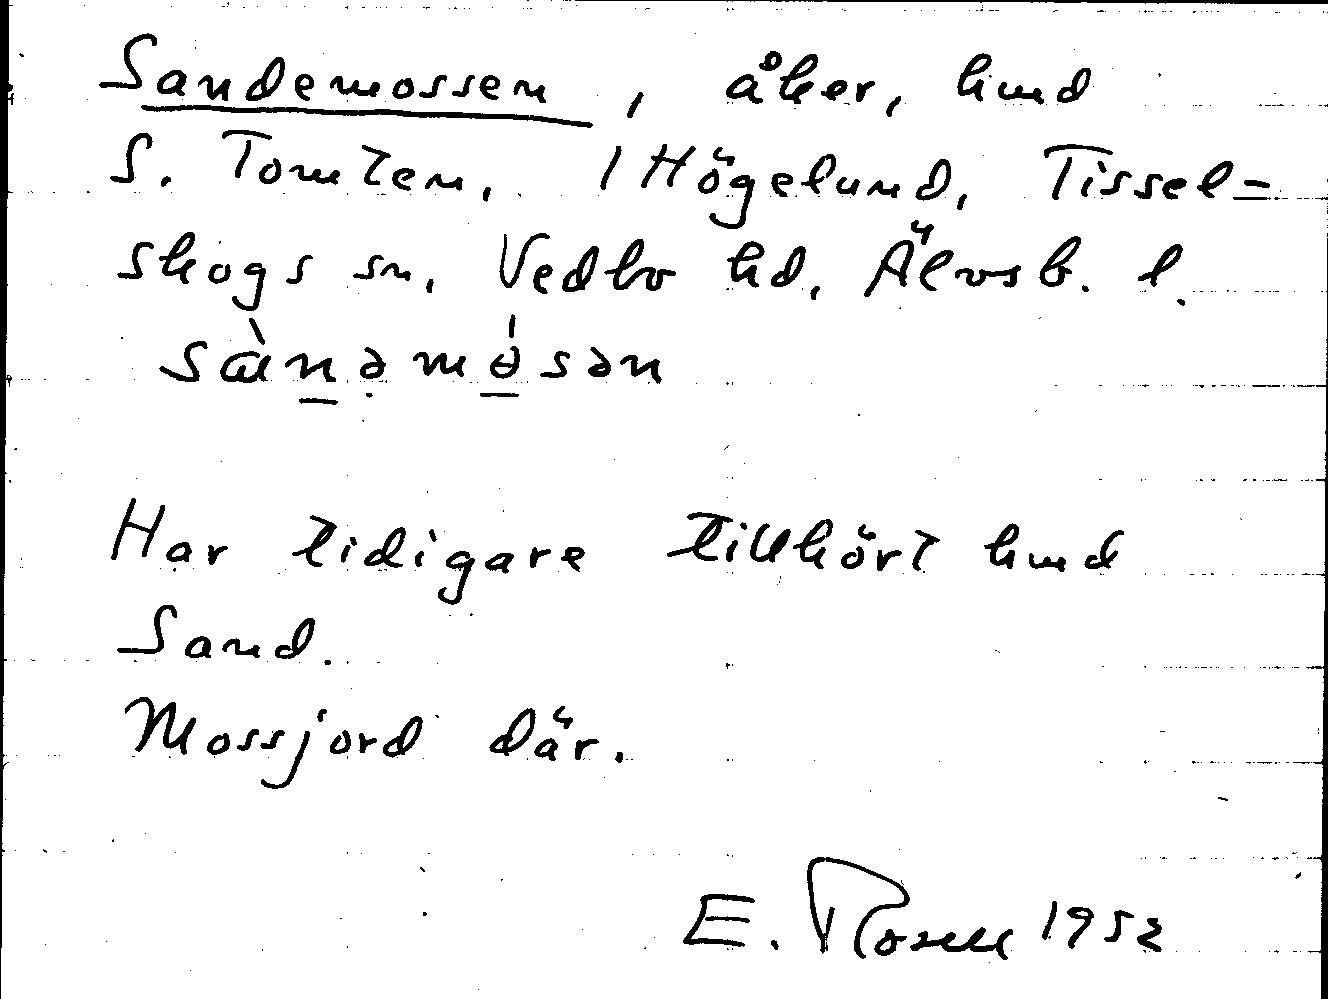 Sandemossen, åker, hmd
S. Tomten, 1 Högelund, Tissel=
skogs sn, Vedbo hd, Älvsb. l.
sàṉə mɵ́sən
Har tidigare tillhört hmd
Sand.
Mossjord där.
E. Rosell 1952